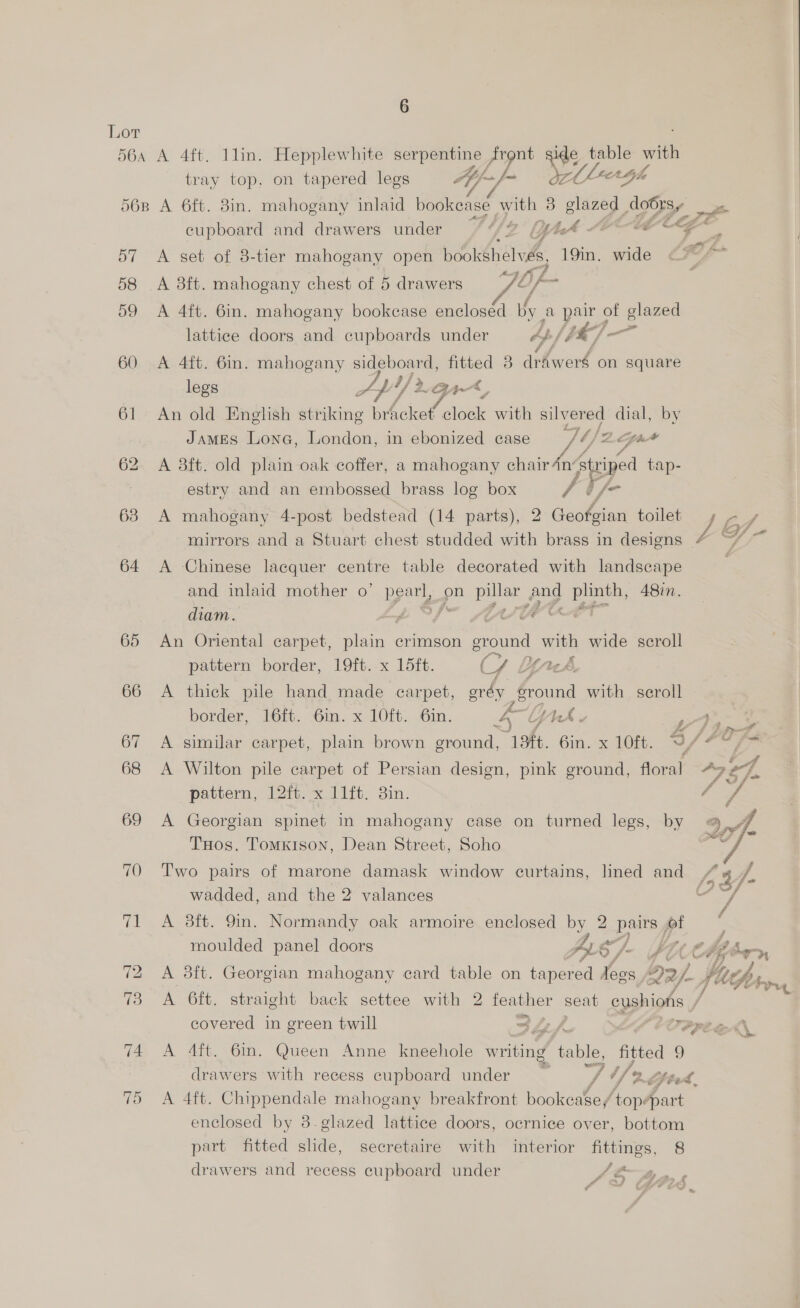 6
Lot
56A A 4ft. 11in. Hepplewhite serpentine front side table with
tray top, on tapered legs
56B A 6ft. 3in. mahogany inlaid bookcase with 3 glazed doors,
cupboard and drawers under
57 A set of 3-tier mahogany open bookshelves, 19in. wide
58 A 3ft. mahogany chest of 5 drawers 70/-
59 A 4ft. 6in. mahogany bookcase enclosed by a pair of glazed
lattice doors and cupboards under
60 A 4ft. 6in. mahogany sideboard, fitted 3 drawers on square
legs
61 An old English striking bracket clock with silvered dial, by
JAMES LONG, London, in ebonized case
62 A 3ft. old plain oak coffer, a mahogany chair in striped tap-
estry and an embossed brass log box
63 A mahogany 4-post bedstead (14 parts), 2 Georgian toilet
mirrors and a Stuart chest studded with brass in designs
64 A Chinese lacquer centre table decorated with landscape
and inlaid mother o' pearl, on pillar and plinth, 48in.
diam.
65 An Oriental carpet, plain crimson ground with wide scroll
pattern border, 19ft. x 15ft.
66 A thick pile hand made carpet, grey ground with scroll
border, 16ft. 6in. x 10ft. 6in.
67 A similar carpet, plain brown ground, 13ft. 6in. x 10ft.
68 A Wilton pile carpet of Persian design, pink ground, floral
pattern, 12ft. x 11ft. 3in.
69 A Georgian spinet in mahogany case on turned legs, by
THOS. TOMKISON, Dean Street, Soho
70 Two pairs of marone damask window curtains, lined and
wadded, and the 2 valances
71 A 3ft. 9in. Normandy oak armoire enclosed by 2 pairs of
moulded panel doors
72 A 3ft. Georgian mahogany card table on tapered legs 22/-
73 A 6ft. straight back settee with 2 feather seat cushions
covered in green twill
74 A 4ft. 6in. Queen Anne kneehole writing table, fitted 9
drawers with recess cupboard under
75 A 4ft. Chippendale mahogany breakfront bookcase, top part
enclosed by 3 glazed lattice doors, ocrnice over, bottom
part fitted slide, secretaire with interior fittings, 8
drawers and recess cupboard under 15 gns.